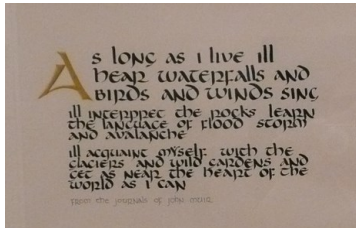 As long as I live ill
hear waterfalls and
birds and winds sing
ill interpret the rocks learn
the language of flood storm
and avalanche
ill acquaint myself with the
glaciers and wild gardens and
get as near the heart of the
world as I can
from the journals of john muir